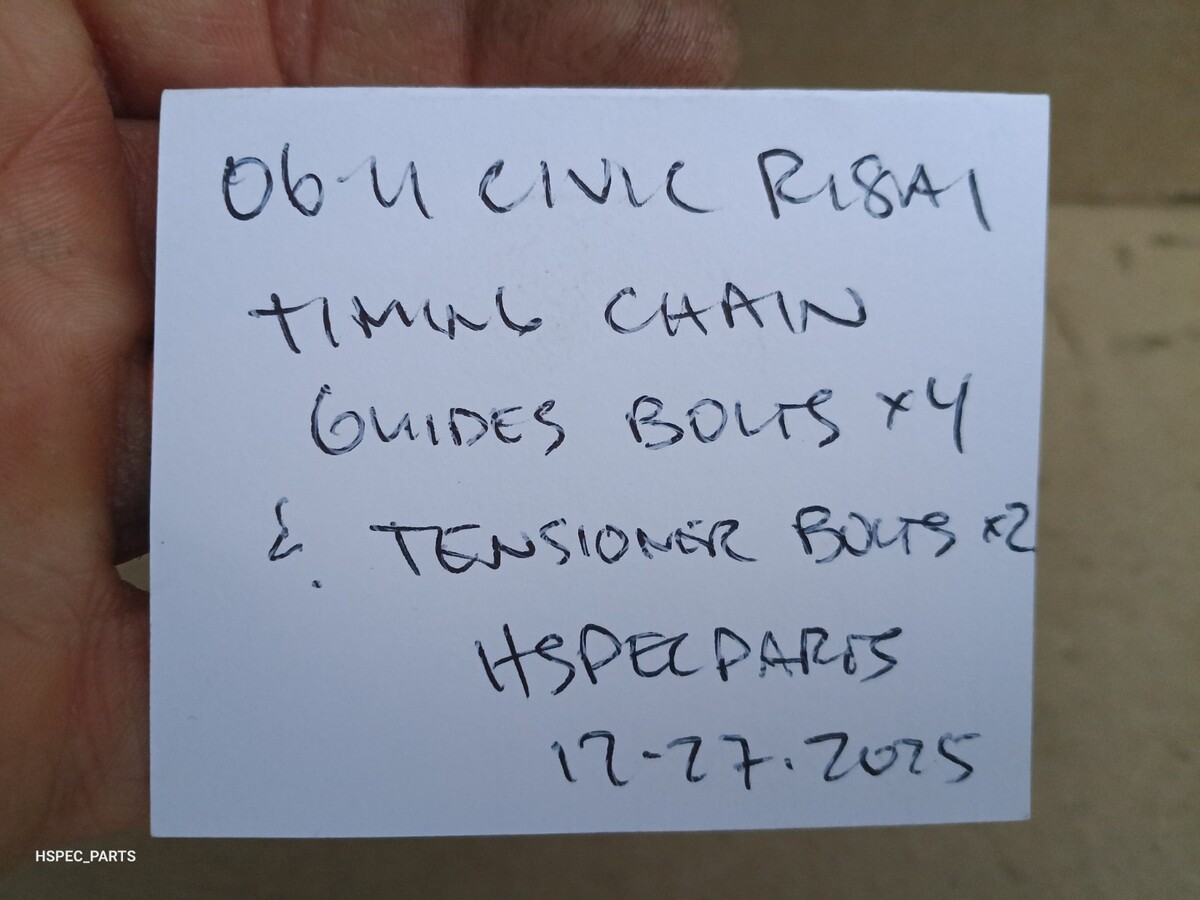 06-11 CIVIC R18A1
TIMING CHAIN
GUIDES BOLTS x4
& TENSIONER BOLTS x2
HSPECPARTS
12-27.2025
HSPEC_PARTS